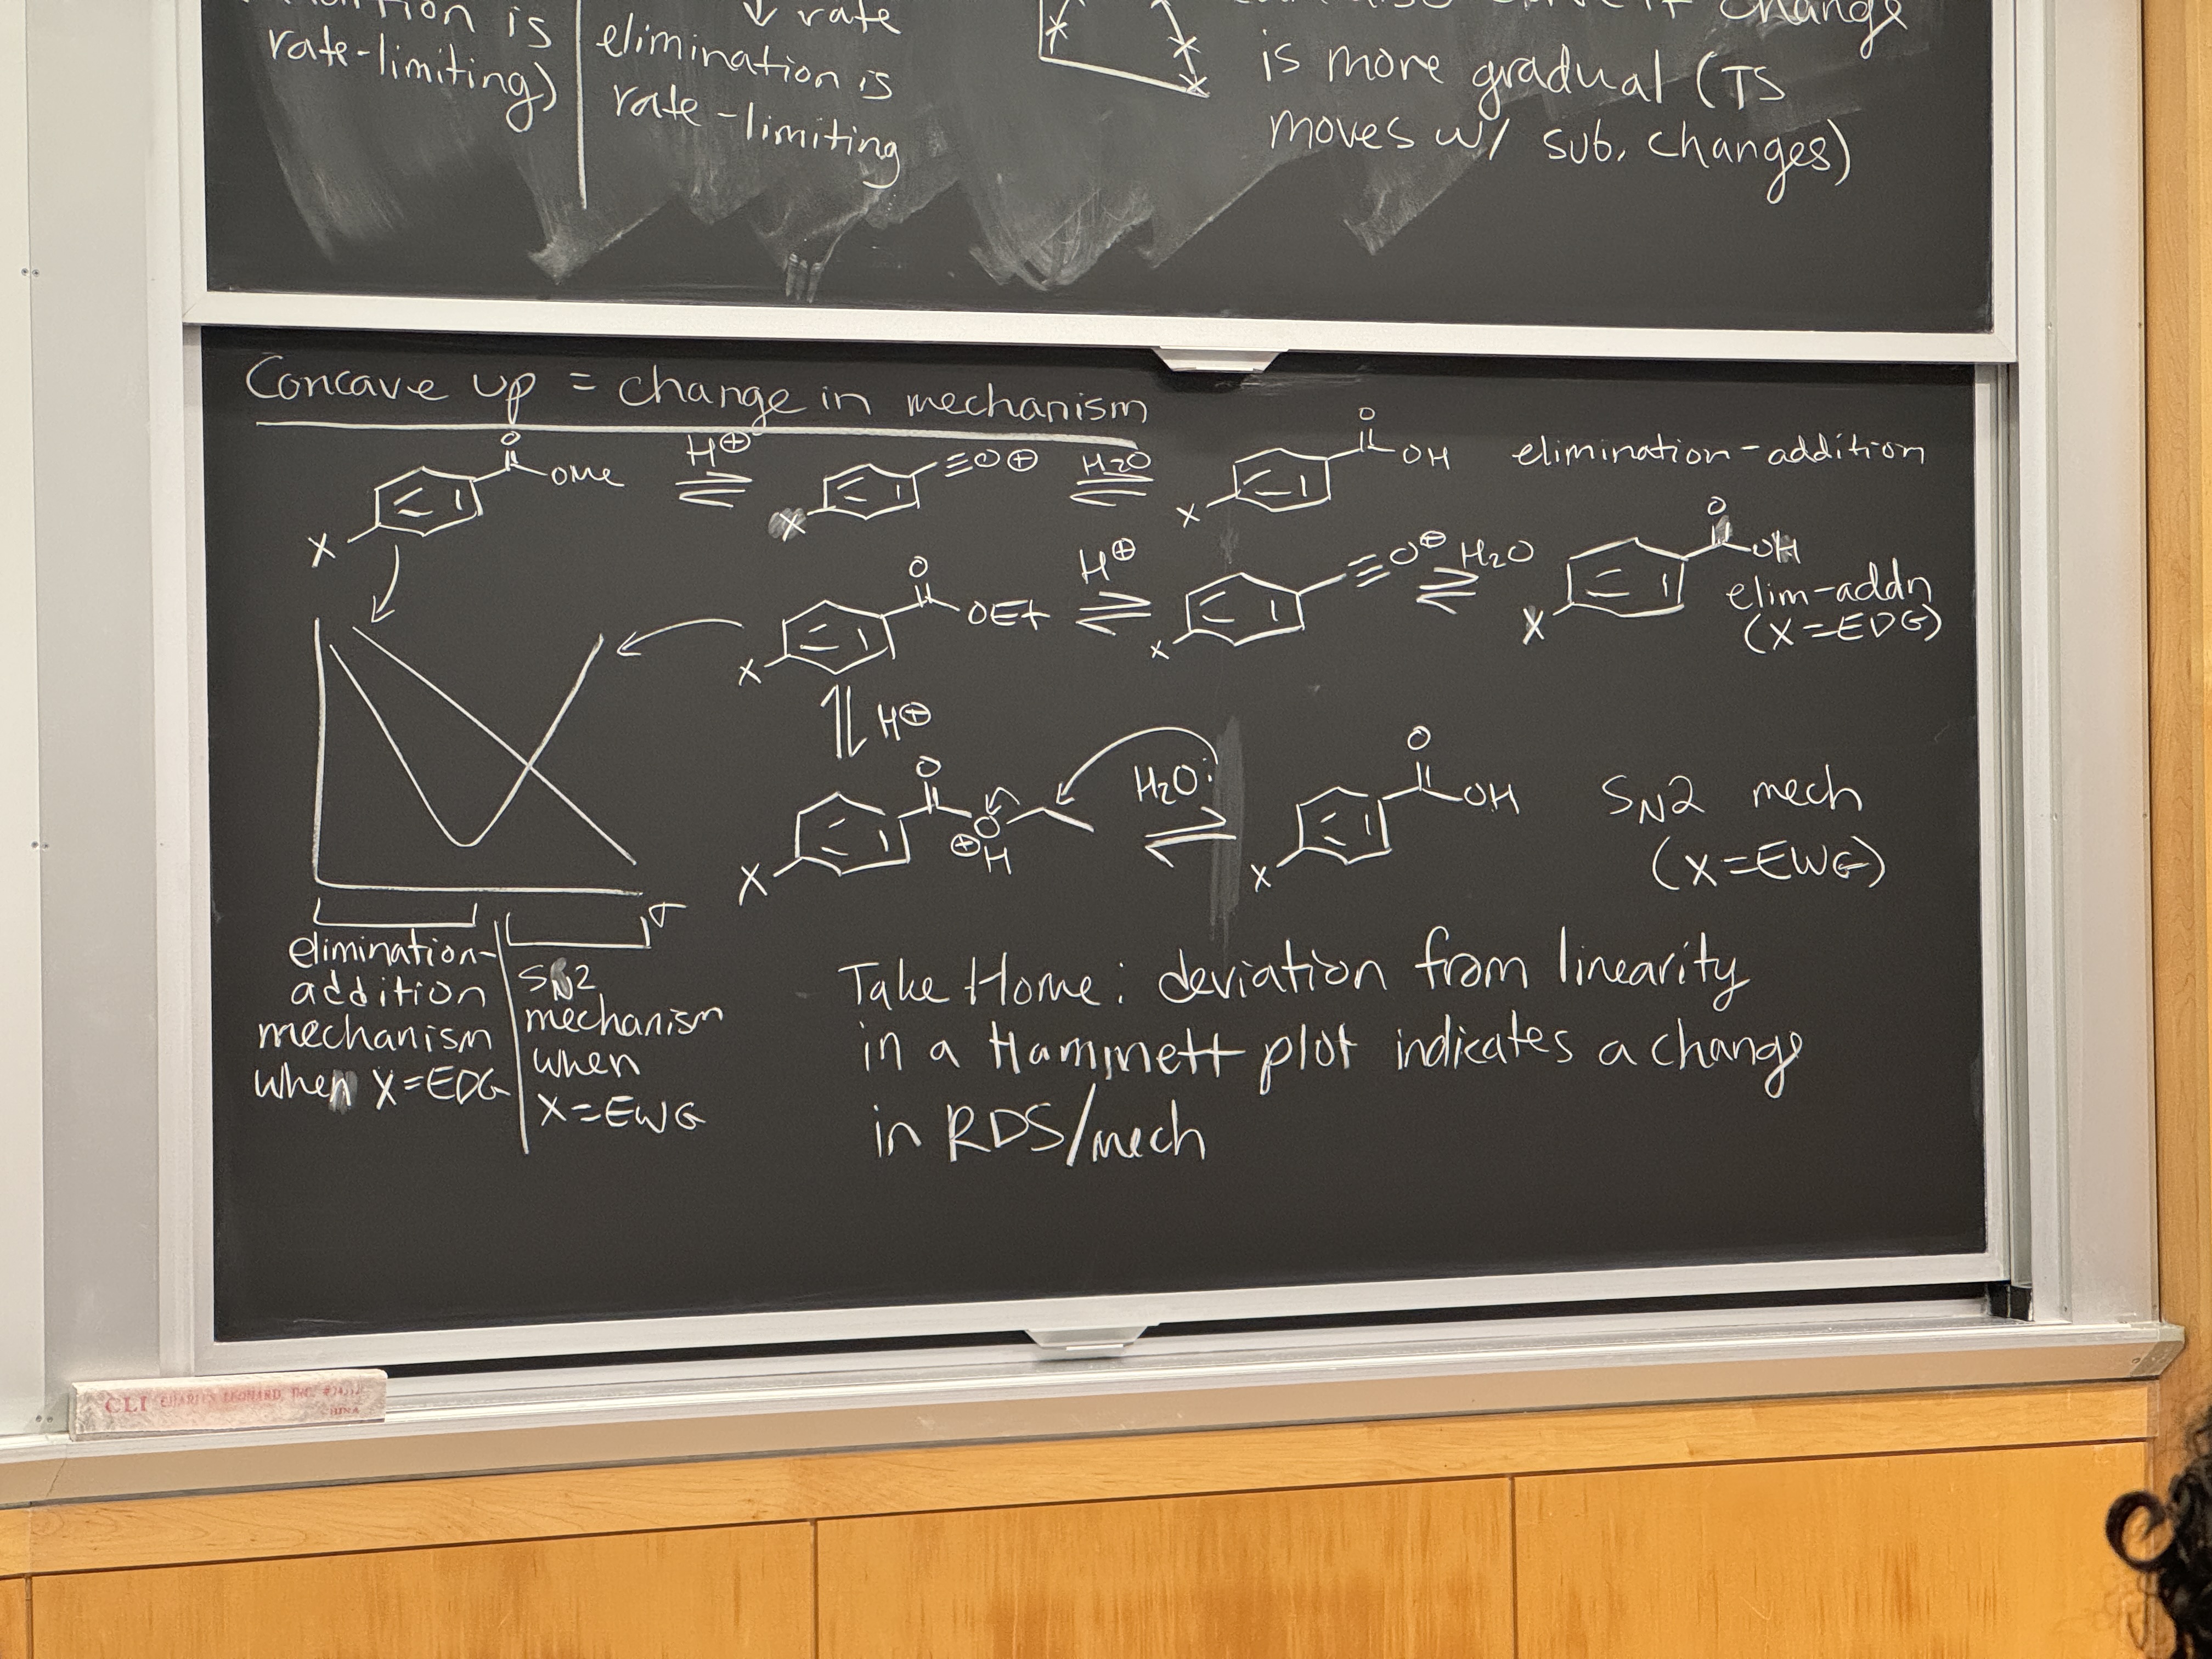 rate-limiting)
is
↓ rate
elimination is
rate-limiting
change
is more gradual (TS
moves w/ sub. changes)
Concave up = change in mechanism
O
OMe
X
H⊕
≡O⊕
X
H2O
O
OH
X
elimination-addition
O
OEt
X
H⊕
≡O⊕
X
H2O
O
OH
X
elim-addn
(X=EDG)
H⊕
O
O
⊕
H
X
H2O:
O
OH
X
SN2 mech
(X=EWG)
σ
elimination-
addition
mechanism
when X=EDG
SN2
mechanism
when
X=EWG
Take Home: deviation from linearity
in a Hammett plot indicates a change
in RDS/mech
CLI CHARLES LEONARD, INC.